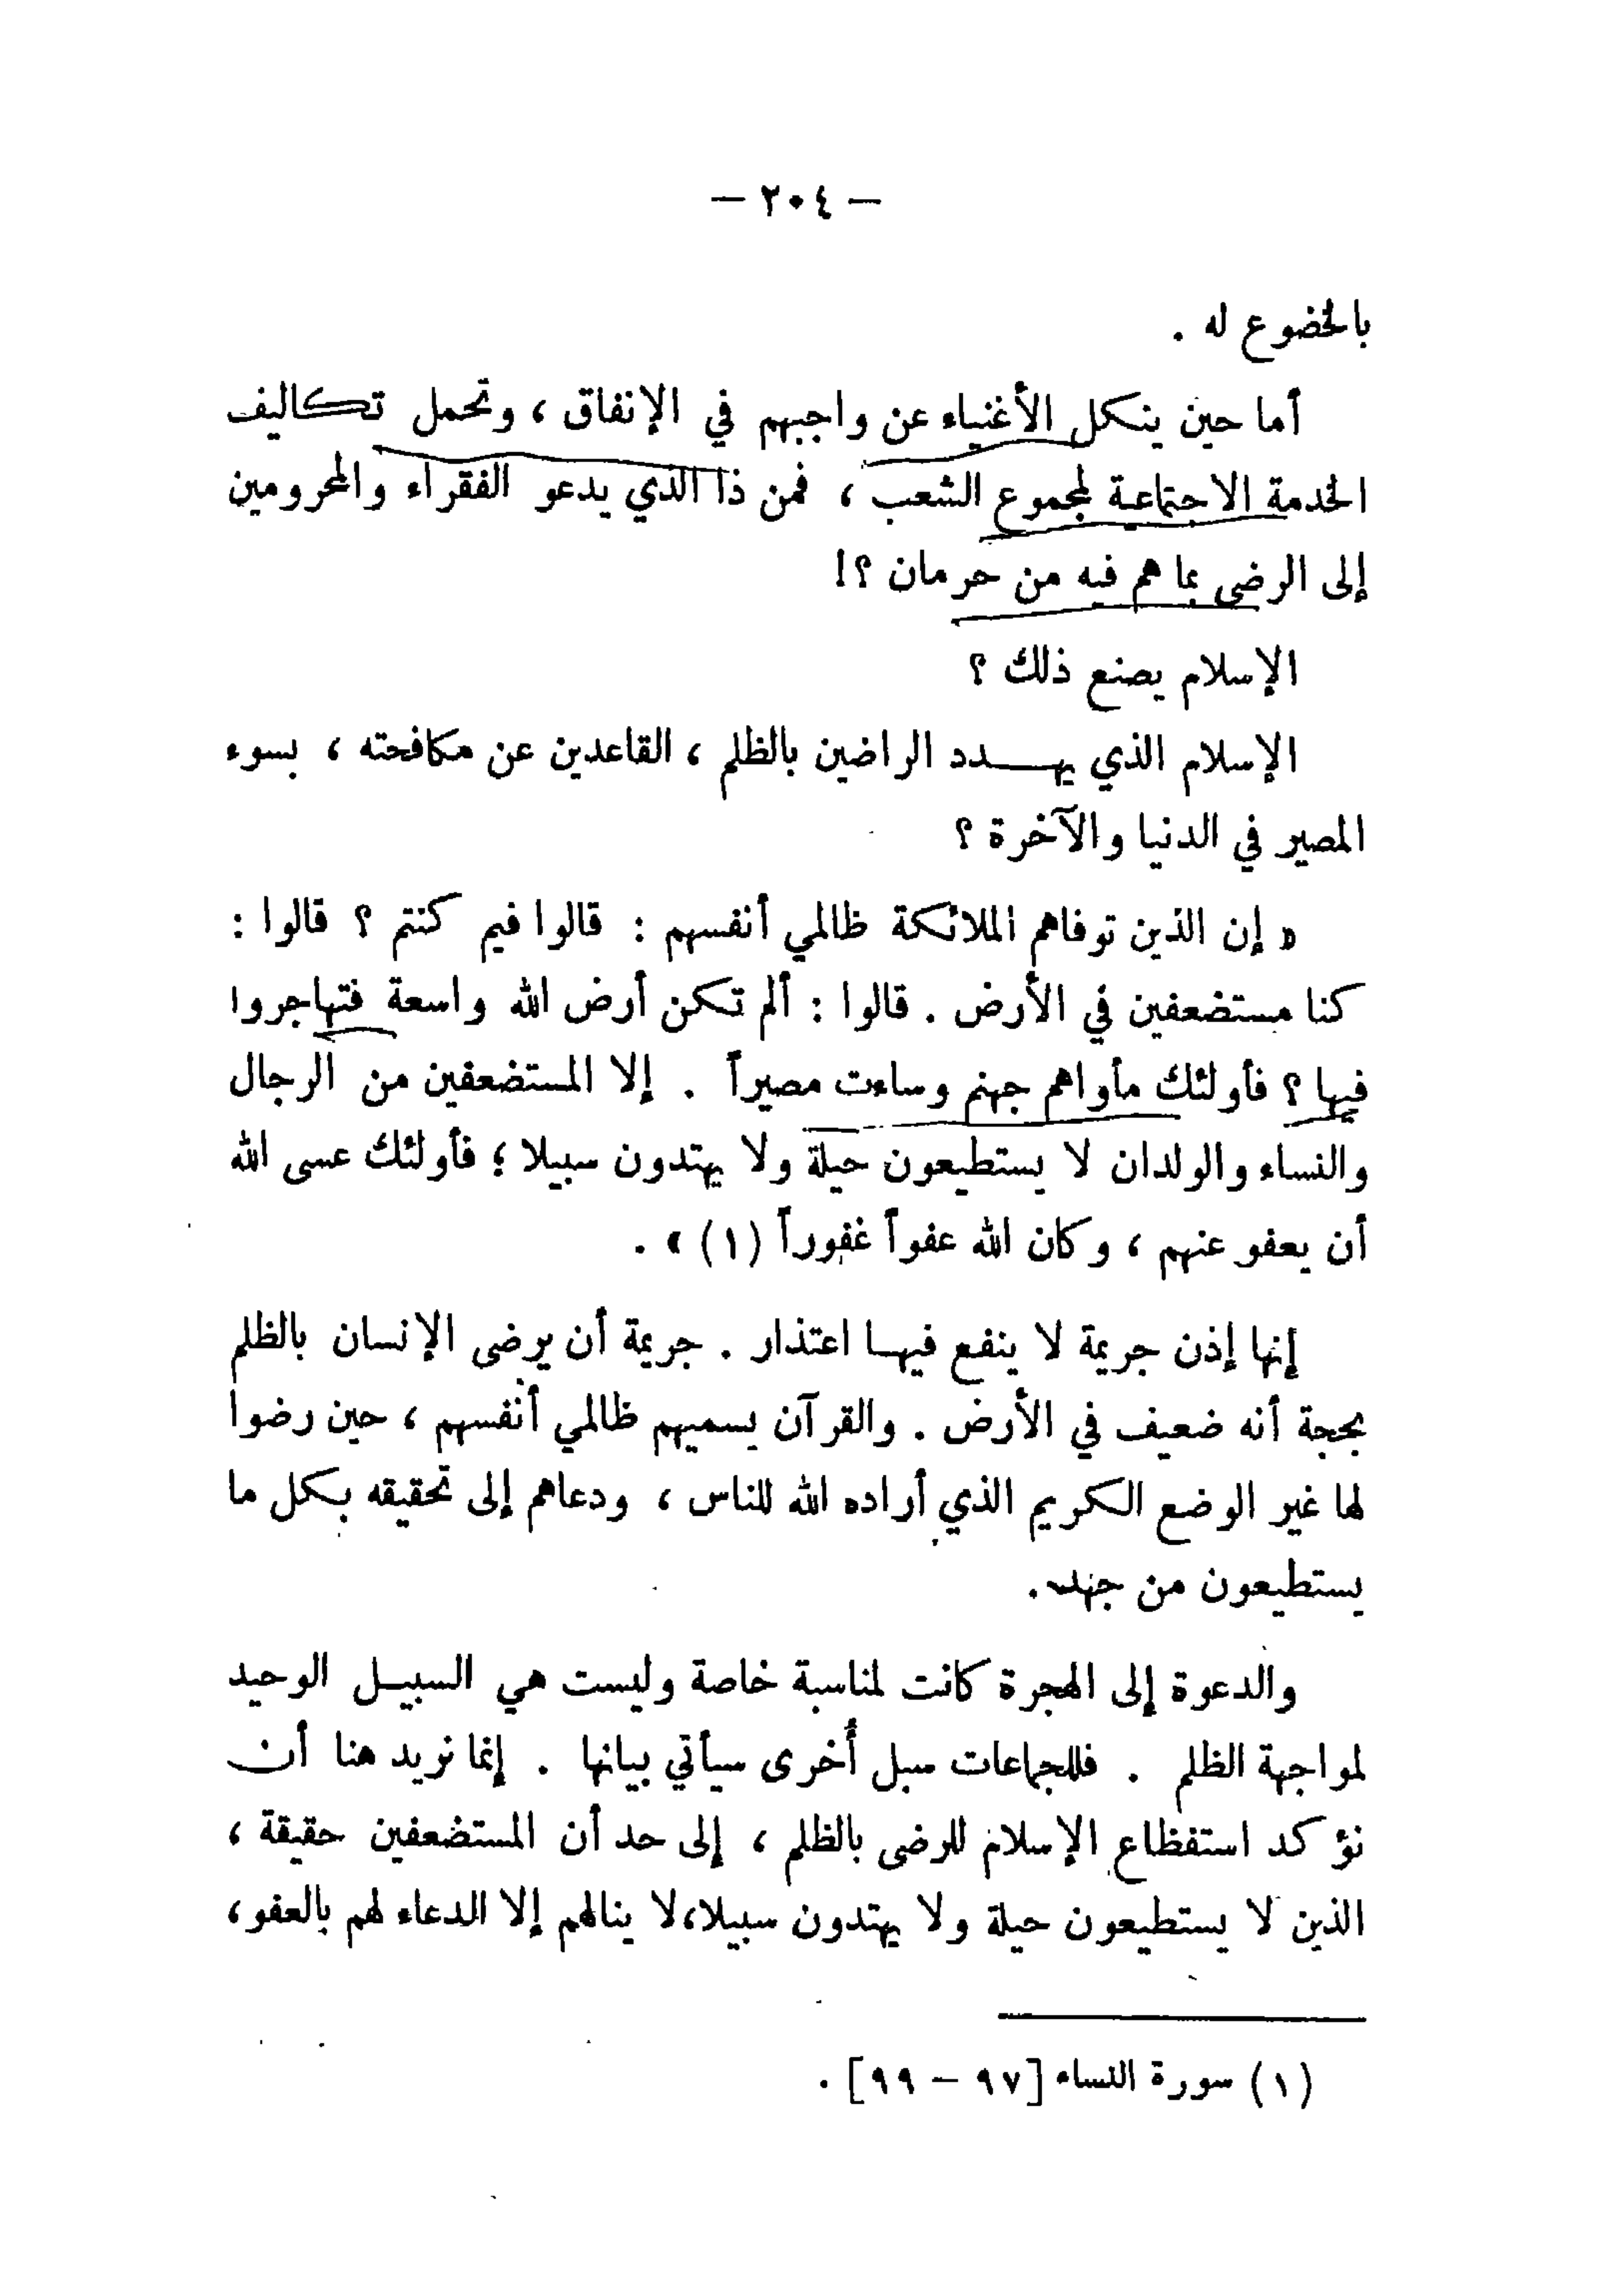 — ٢٠٤ —
بالخضوع له .
أما حين ينكل الأغنياء عن واجبهم في الإنفاق ، وتحمل تكاليف
الخدمة الاجتماعية لمجموع الشعب ، فمن ذا الذي يدعو الفقراء والمحرومين
إلى الرضى بما هم فيه من حرمان ؟!
الإسلام يصنع ذلك ؟
الإسلام الذي يهـــدد الراضين بالظلم ، القاعدين عن مكافحته ، بسوء
المصير في الدنيا والآخرة ؟
« إن الذين توفاهم الملائكة ظالمي أنفسهم : قالوا فيم كنتم ؟ قالوا :
كنا مستضعفين في الأرض . قالوا : ألم تكن أرض الله واسعة فتهاجروا
فيها ؟ فأولئك مأواهم جهنم وساءت مصيراً . إلا المستضعفين من الرجال
والنساء والولدان لا يستطيعون حيلة ولا يهتدون سبيلا ؛ فأولئك عسى الله
أن يعفو عنهم ، وكان الله عفواً غفوراً (١) » .
إنها إذن جريمة لا ينفع فيهـا اعتذار . جريمة أن يرضى الإنسان بالظلم
بحجة أنه ضعيف في الأرض . والقرآن يسميهم ظالمي أنفسهم ، حين رضوا
لها غير الوضع الكريم الذي أراده الله للناس ، ودعاهم إلى تحقيقه بكل ما
يستطيعون من جهد .
والدعوة إلى الهجرة كانت لمناسبة خاصة وليست هي السبيـل الوحيد
لمواجهة الظلم . فللجماعات سبل أُخرى سيأتي بيانها . إنما نريد هنا أن
نؤكد استفظاع الإسلام للرضى بالظلم ، إلى حد أن المستضعفين حقيقة ،
الذين لا يستطيعون حيلة ولا يهتدون سبيلا، لا ينالهم إلا الدعاء لهم بالعفو،
(١) سورة النساء [٩٧ – ٩٩] .